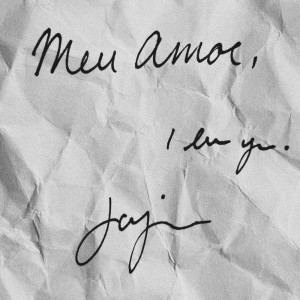 Meu Amor,
I love you.